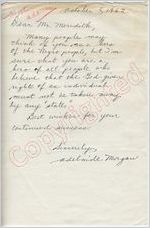 October 5, 1962
Dear Mr. Meredith,
Many people may
think of you as a hero
of the Negro people, but I'm
sure that you are a
hero of all people who
believe that the God-given
rights of an individual
must not be taken away
by any "state."
Best wishes for your
continued success.
Sincerely,
Adelaide Morgan
Copyrighted